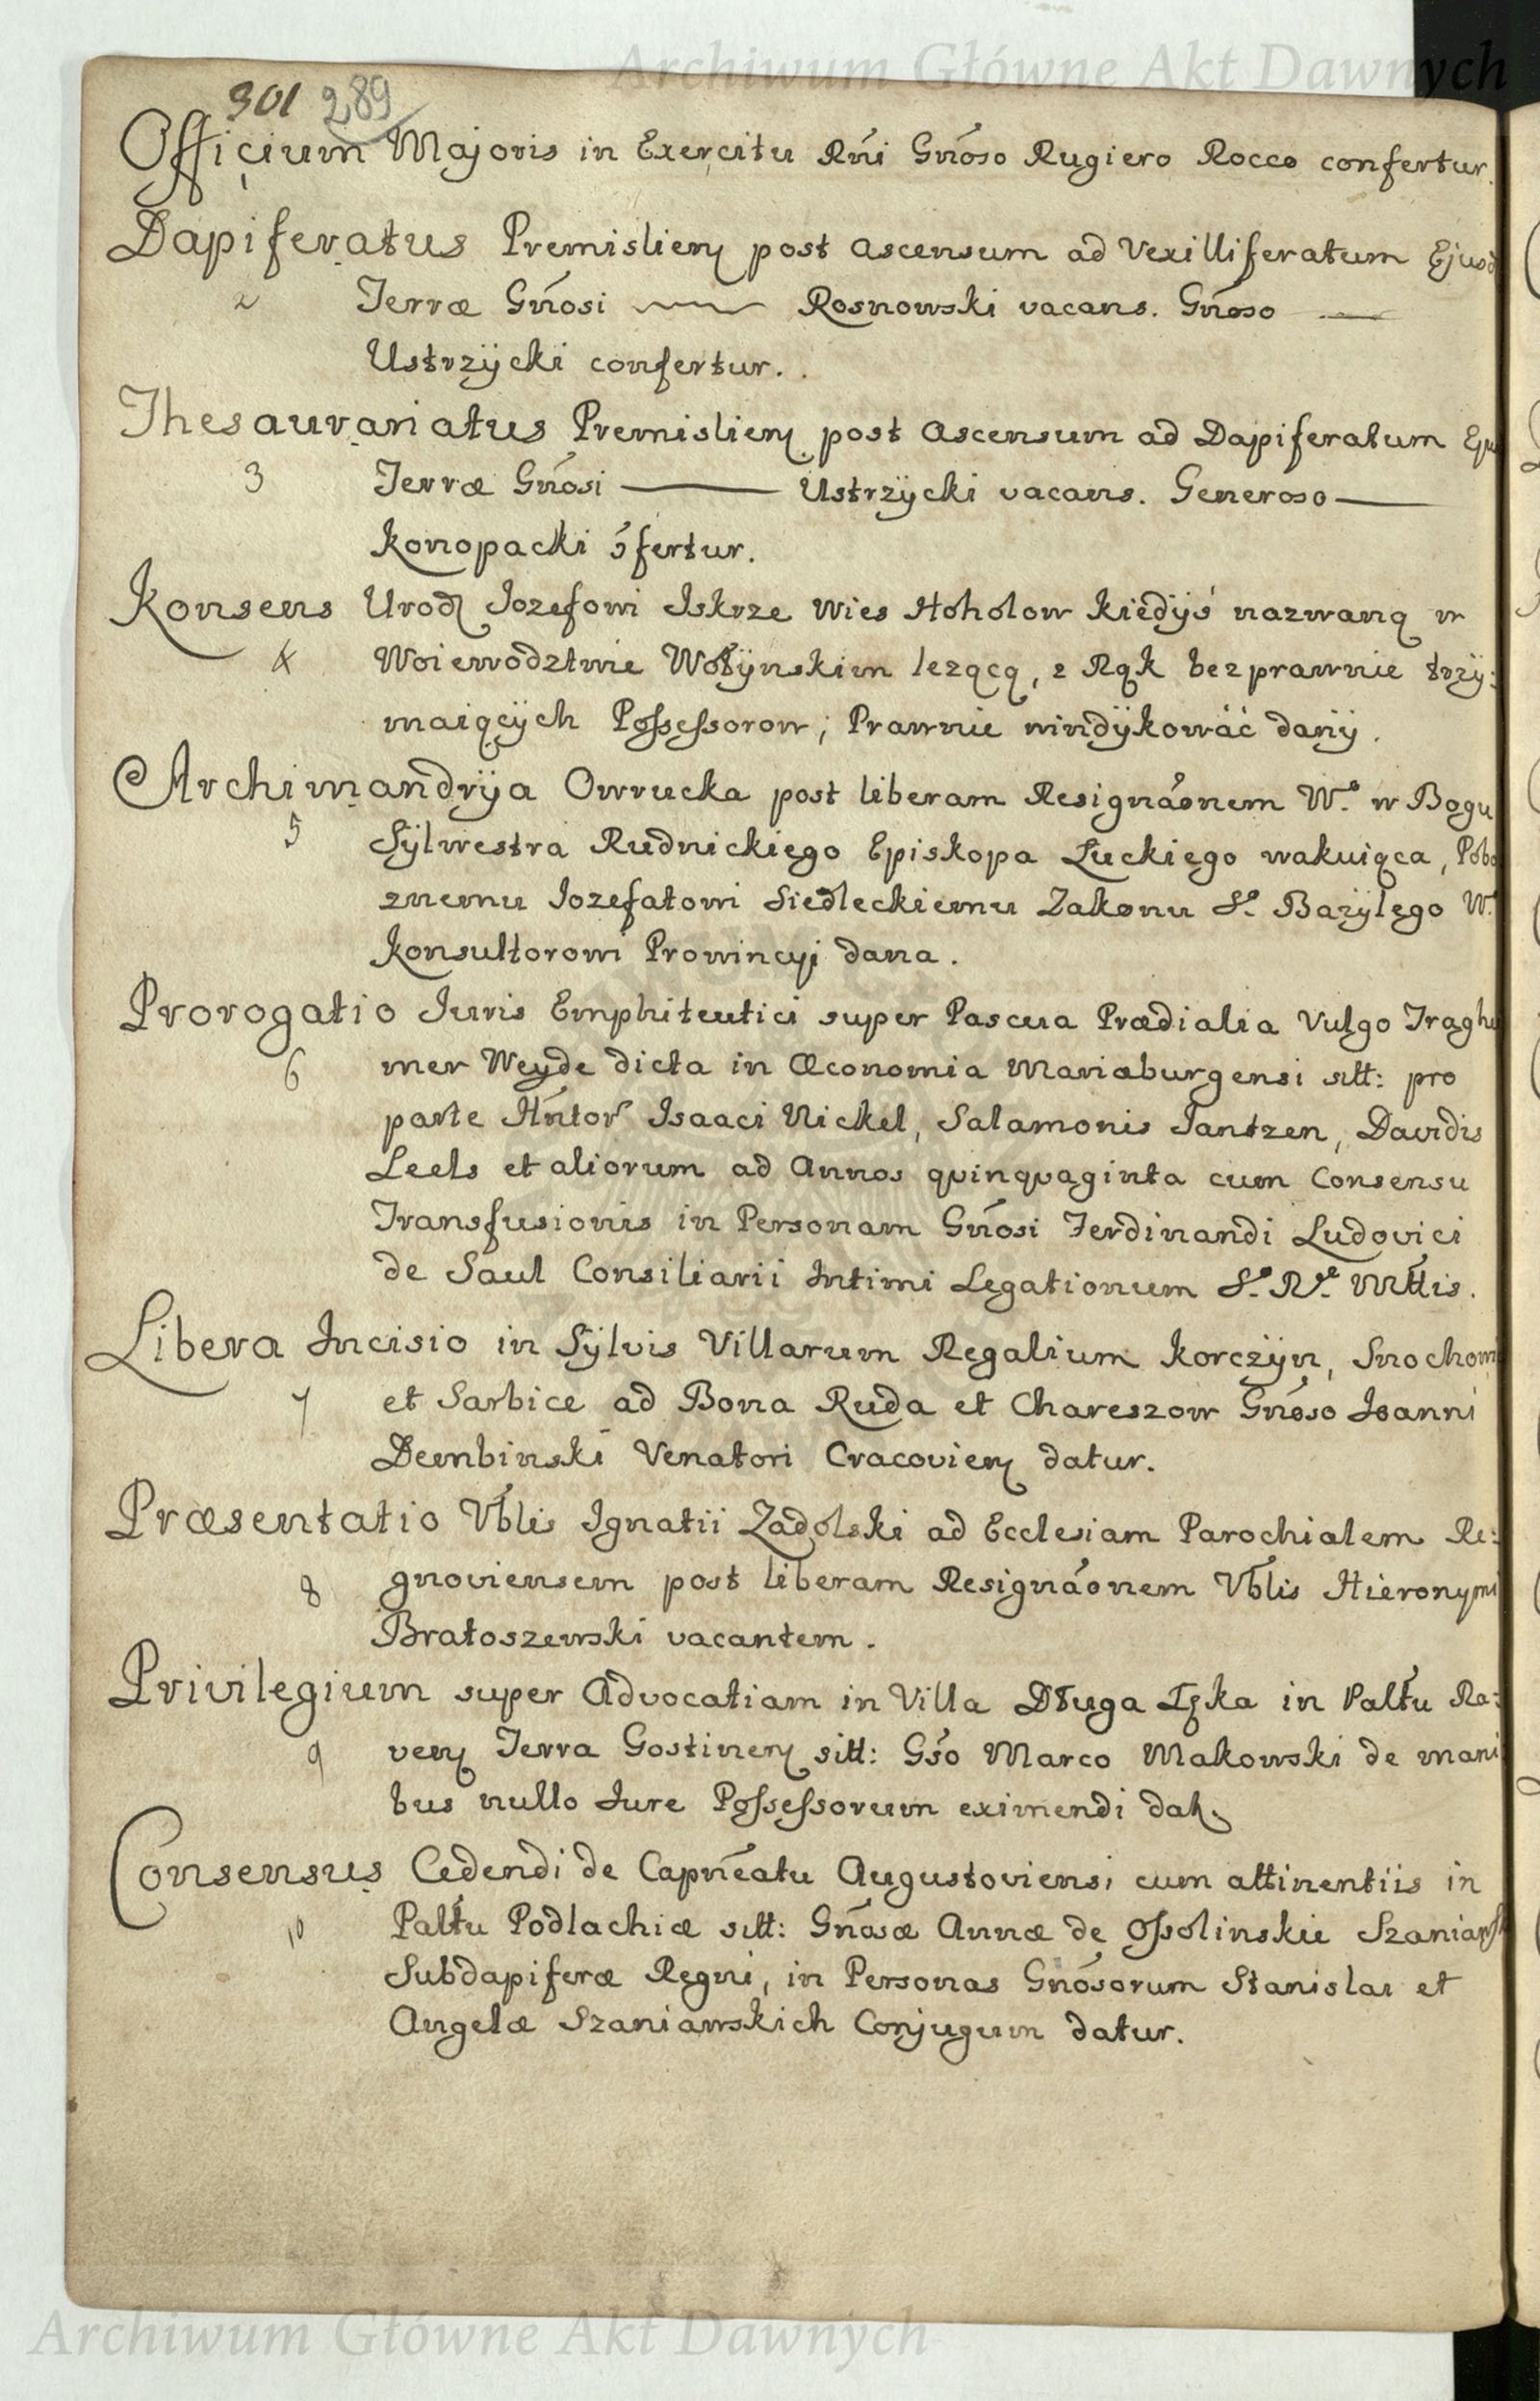 Archiwum Główne Akt Dawnych
301 289
Officium Majoris in Exercitu Rńi Gńoso Rugiero Rocco confertur.
Dapiferatus Premislien post ascensum ad Vexilliferatum Ejusd
2 Terræ Gńosi Rosnowski vacans. Gńoso
Ustrzÿcki confertur.
Thesaurariatus Premislien post ascensum ad Dapiferatum Eju
3 Terræ Gńosi Ustrzÿcki vacans. Generoso
Konopacki ɔ́fertur.
Konsens Urodz Jozefowi Iskrze Wies Hoholow kiedÿś nazwaną w
4 Woiewodztwie Wołÿnskiem lezącą, z Rąk bezprawnie trzÿ:
maiącÿch Possessorow; Prawnie windÿkowáć danÿ.
Archimandrÿa Owrucka post liberam Resignáonem W.° w Bogu
5 Sÿlwestra Rudnickiego Episkopa Luckiego wakuiąca, Pobo
znemu Jozefatowi Siedleckiemu Zakonu S.° Bazÿlego W.°
Konsultorowi Prowincyi dana.
Prorogatio Juris Emphiteutici super Pascua Prædialia Vulgo Traghe
6 mer Weyde dicta in Œconomia Mariaburgensi sitt: pro
parte Hńtor Isaaci Nickel, Salamonis Jantzen, Davidis
Leels et aliorum ad Annos quinquaginta cum Consensu
Transfusionis in Personam Gńosi Ferdinandi Ludovici
de Saul Consiliarii Intimi Legationum S.° R.° Mttis.
Libera Incisio in Sÿlvis Villarum Regalium Korczÿn, Snochow
7 et Sarbice ad Bona Ruda et Chareszow Gńoso Joanni
Dembinski Venatori Cracovien datur.
Præsentatio Vblis Ignatii Zadolski ad Ecclesiam Parochialem Re:
8 gnoviensem post liberam Resignáonem Vblis Hieronymi
Bratoszewski vacantem.
Privilegium super Advocatiam in Villa Długa Łąka in Palttu Ra:
9 ven Terra Gostinen sitt: Gśo Marco Makowski de mani
bus nullo Jure Possessorum eximendi dat.
Consensus Cedendi de Capńeatu Augustoviensi cum attinentiis in
10 Palttu Podlachiæ sitt: Gńosæ Annæ de Ossolinskie Szaniawsk
Subdapiferæ Regni, in Personas Gńosorum Stanislai et
Angelæ Szaniawskich Conjugum datur.
Archiwum Główne Akt Dawnych